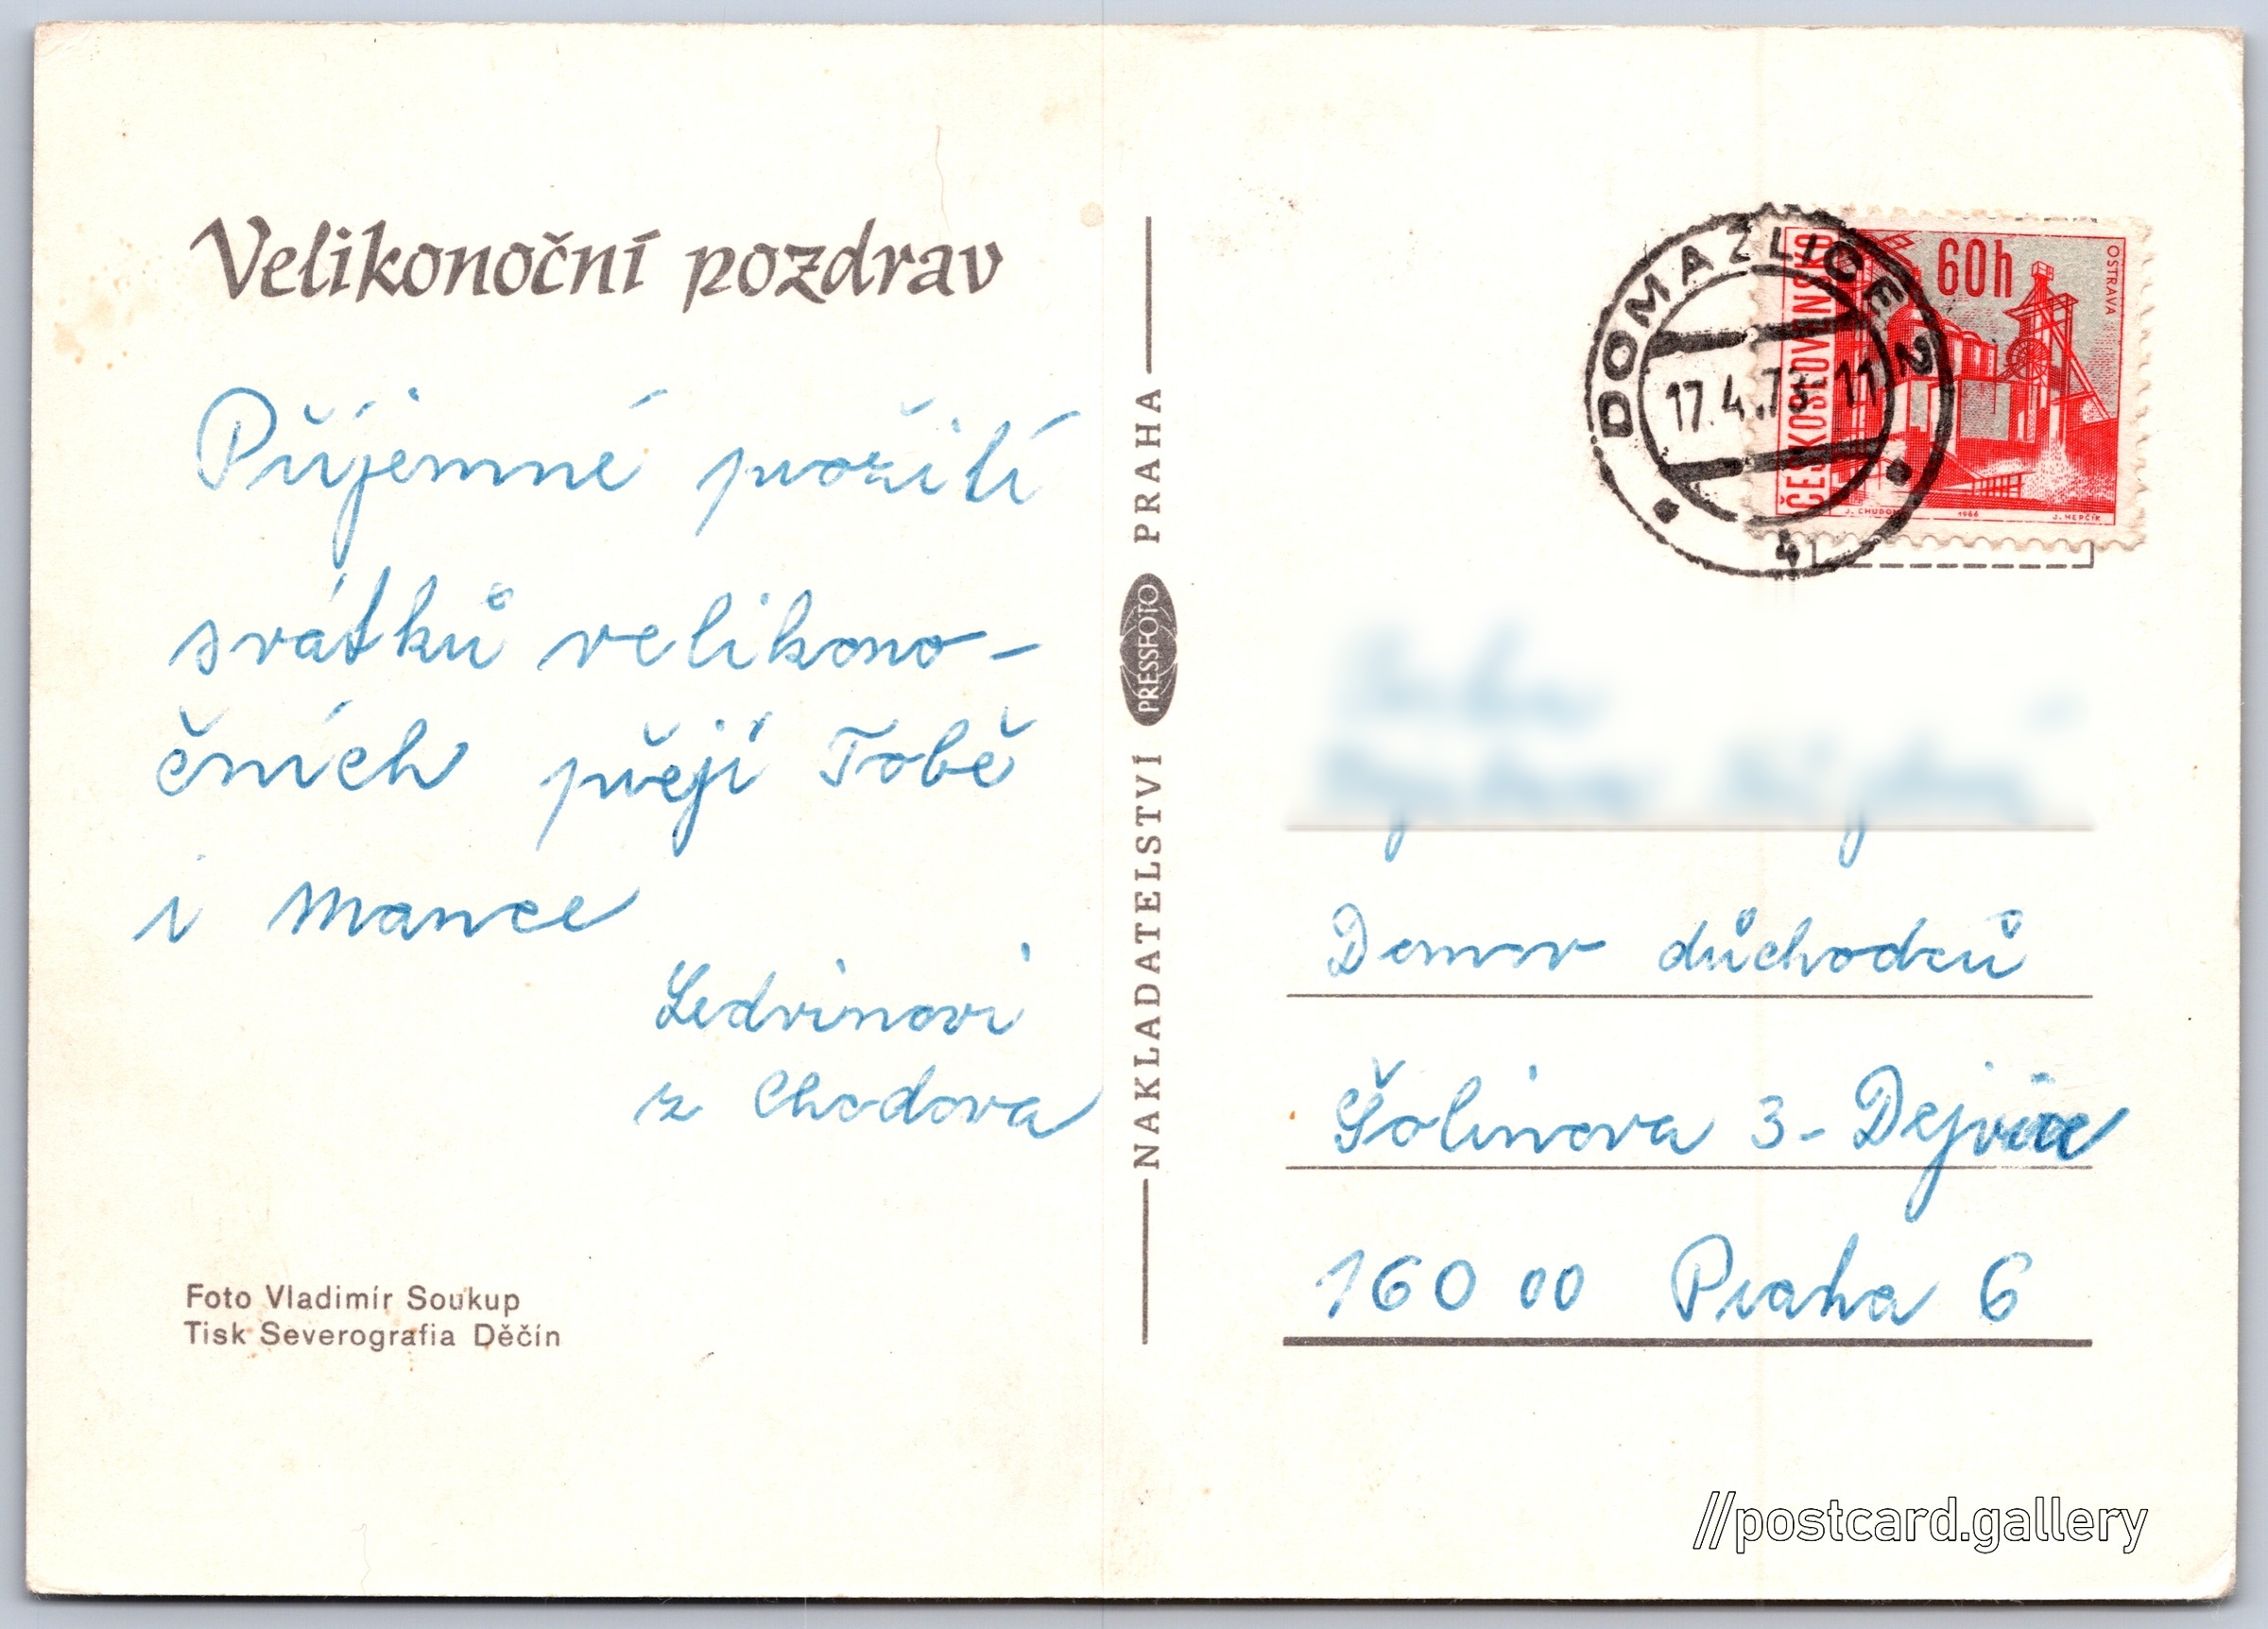 Velikonoční pozdrav
Příjemné prožití
svátků velikono-
čních přejí Tobě
i Mance
Ledvinovi
z Chodova
Foto Vladimír Soukup
Tisk Severografia Děčín
NAKLADATELSTVÍ PRESSFOTO PRAHA
DOMAŽLICE 2
17.4.73-11
4
ČESKOSLOVENSKO
60h
OSTRAVA
1966
J. HERČÍK
Domov důchodců
Šolínova 3 - Dejvice
160 00 Praha 6
//postcard.gallery